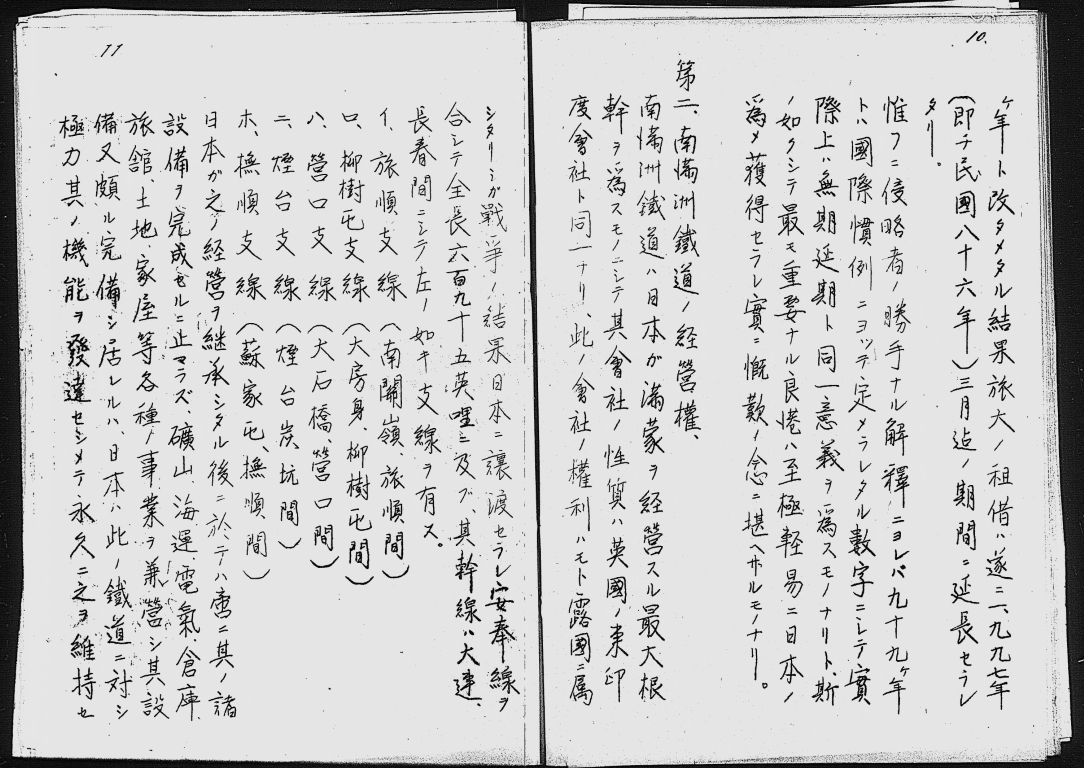 10.
ヶ年ト改タメタル結果旅大ノ租借ハ遂ニ一、九九七年
(即チ民國八十六年)三月迠ノ期間ニ延長セラレ
タリ。
惟フニ侵略者ノ勝手ナル解釋ニヨレバ九十九ヶ年
トハ國際慣例ニヨッテ定メラレタル數字ニシテ實
際上ハ無期延期ト同一意義ヲ爲スモノナリト、斯
ノ如クシテ最モ重要ナル良港ハ至極軽易ニ日本ノ
爲メ獲得セラレ實ニ慨歎ノ念ニ堪ヘサルモノナリ。
第二、南滿洲鐵道ノ経營權、
南滿洲鐵道ハ日本ガ滿蒙ヲ経營スル最大根
幹ヲ爲スモノニシテ其會社ノ性質ハ英國ノ東印
度會社ト同一ナリ、此ノ會社ノ權利ハモト露國ニ属
11
シタリシガ戰爭ノ結果日本ニ讓渡セラレ安奉線ヲ
合シテ全長六百九十五英哩ニ及ブ、其幹線ハ大連、
長春間ニシテ左ノ如キ支線ヲ有ス。
イ、旅順支線(南關嶺、旅順間)
ロ、柳樹屯支線(大房身、柳樹屯間)
ハ、營口支線(大石橋、營口間)
ニ、煙台支線(煙台炭坑間)
ホ、撫順支線(蘇家屯、撫順間)
日本ガ之ノ経營ヲ継承シタル後ニ於テハ啻ニ其ノ諸
設備ヲ完成セルニ止マラズ、礦山、海運、電氣、倉庫、
旅舘、土地、家屋等各種ノ事業ヲ兼營シ其設
備又頗ル完備シ居レルハ、日本ハ此ノ鐵道ニ対シ
極力其ノ機能ヲ發達セシメテ永久ニ之ヲ維持セ